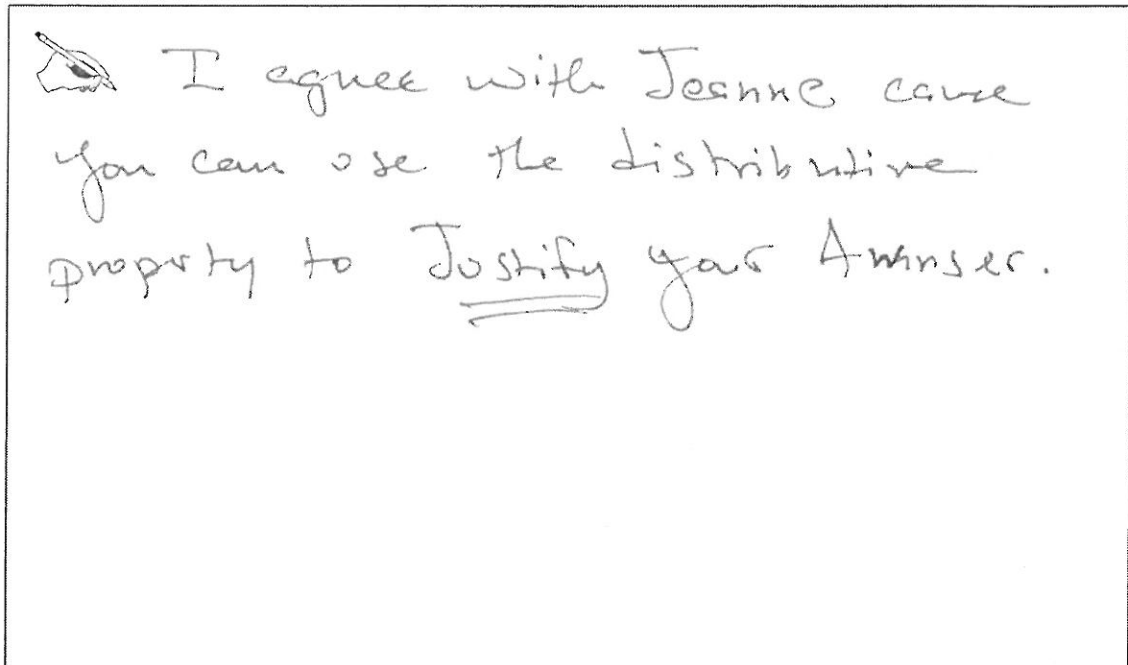 I agree with Jeanne cause
you can use the distributive
property to Justify your Awnser.